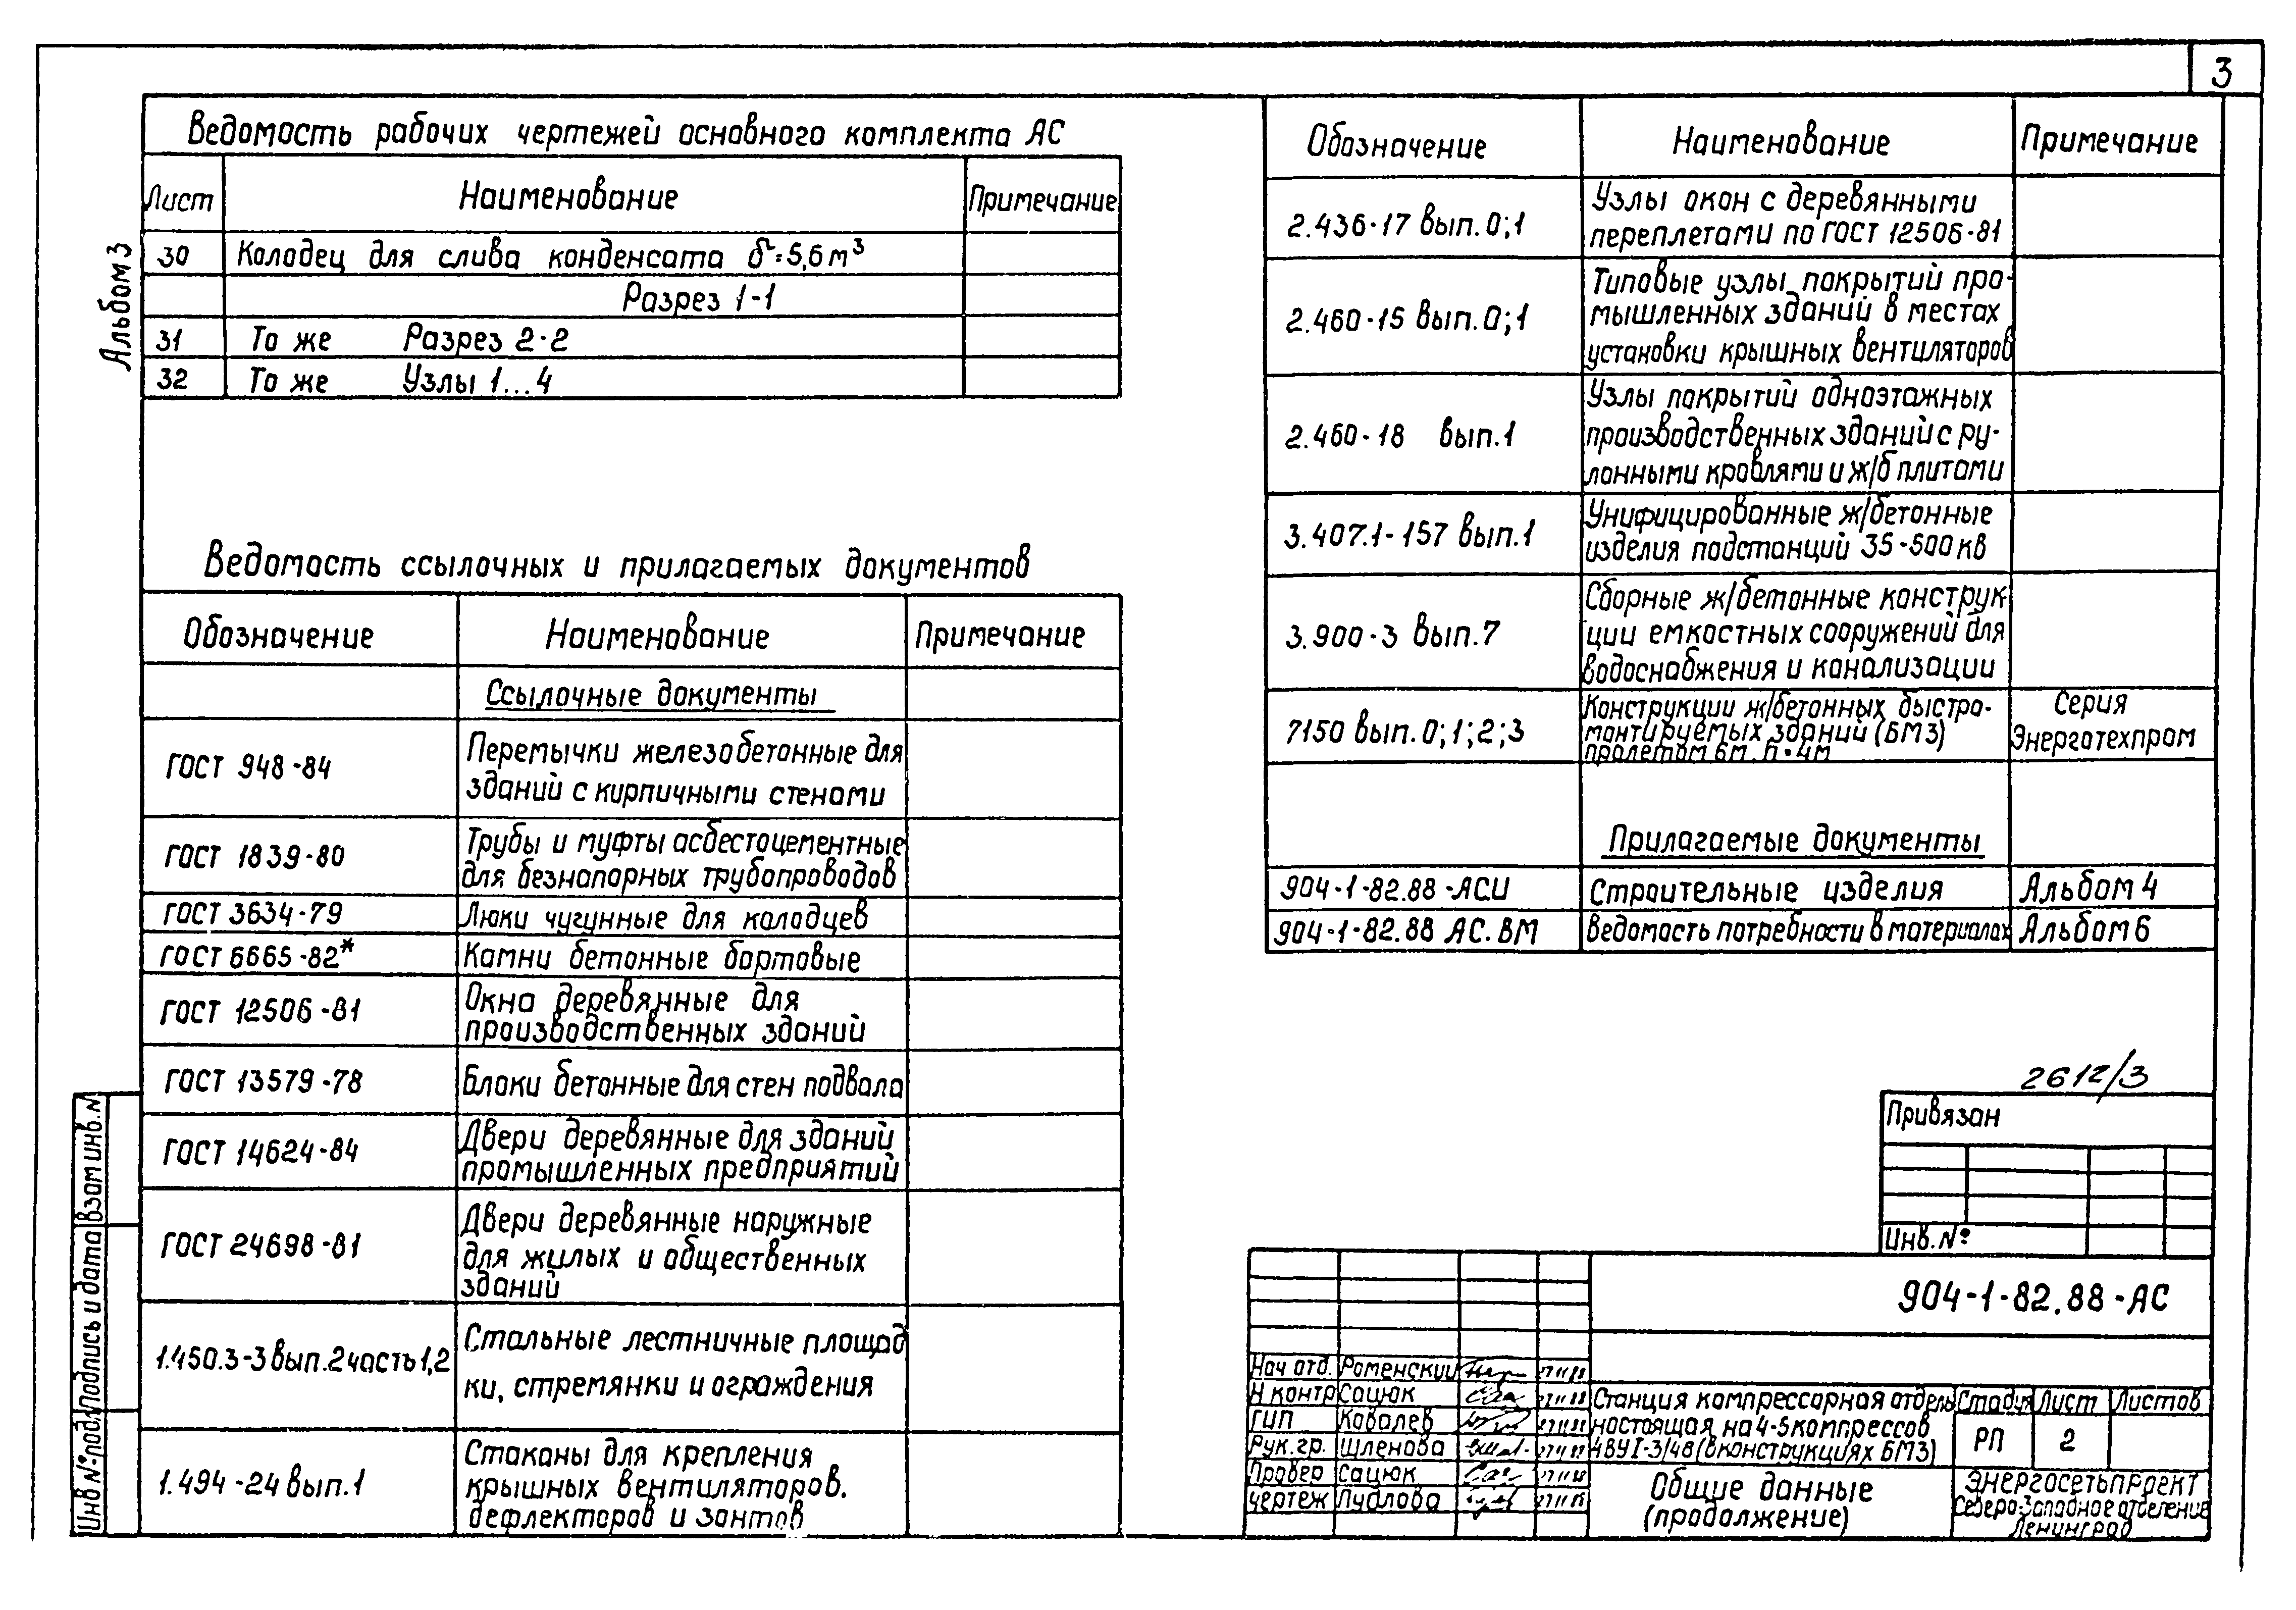 3
Альбом 3
Ведомость рабочих чертежей основного комплекта АС
Лист Наименование Примечание
30 Колодец для слива конденсата б=5,6 м³
Разрез 1-1
31 То же Разрез 2-2
32 То же Узлы 1...4
Ведомость ссылочных и прилагаемых документов
Обозначение Наименование Примечание
Ссылочные документы
ГОСТ 948-84 Перемычки железобетонные для
зданий с кирпичными стенами
ГОСТ 1839-80 Трубы и муфты асбестоцементные
для безнапорных трубопроводов
ГОСТ 3634-79 Люки чугунные для колодцев
ГОСТ 6665-82* Камни бетонные бортовые
ГОСТ 12506-81 Окна деревянные для
производственных зданий
ГОСТ 13579-78 Блоки бетонные для стен подвала
ГОСТ 14624-84 Двери деревянные для зданий
промышленных предприятий
ГОСТ 24698-81 Двери деревянные наружные
для жилых и общественных
зданий
1.450.3-3 вып.2 часть 1,2 Стальные лестничные площад
ки, стремянки и ограждения
1.494-24 вып.1 Стаканы для крепления
крышных вентиляторов.
дефлекторов и зонтов
Обозначение Наименование Примечание
2.436-17 вып.0;1 Узлы окон с деревянными
переплетами по ГОСТ 12506-81
2.460-15 вып.0;1 Типовые узлы покрытий про-
мышленных зданий в местах
установки крышных вентиляторов
2.460-18 вып.1 Узлы покрытий одноэтажных
производственных зданий с ру-
лонными кровлями и ж/б плитами
3.407.1-157 вып.1 Унифицированные ж/бетонные
изделия подстанций 35-500 кв
3.900-3 вып.7 Сборные ж/бетонные конструк-
ции емкостных сооружений для
водоснабжения и канализации
7150 вып.0;1;2;3 Конструкции ж/бетонных быстро-
монтируемых зданий (БМЗ)
пролетом 6м. h=4м
Серия
Энерготехпром
Прилагаемые документы
904-1-82.88-АСИ Строительные изделия Альбом 4
904-1-82.88 АС.ВМ Ведомость потребности в материалах Альбом 6
2612/3
Привязан
Инв.№
904-1-82.88-АС
Нач отд. Роменский
Н контр Сацюк
ГИП Ковалев
Рук.гр. Шленова
Провер Сацюк
чертеж
Станция компрессорная отдель
ностоящая на 4-5 компрессов
4ВУ1-3/48 (в конструкциях БМЗ)
Стадия Лист Листов
РП 2
Общие данные
(продолжение)
ЭНЕРГОСЕТЬПРОЕКТ
Северо-Западное отделение
Ленинград
Инв №подл. Подпись и дата Взам инв.N